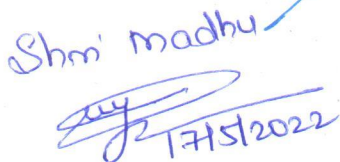 Shri madhu
17/5/2022